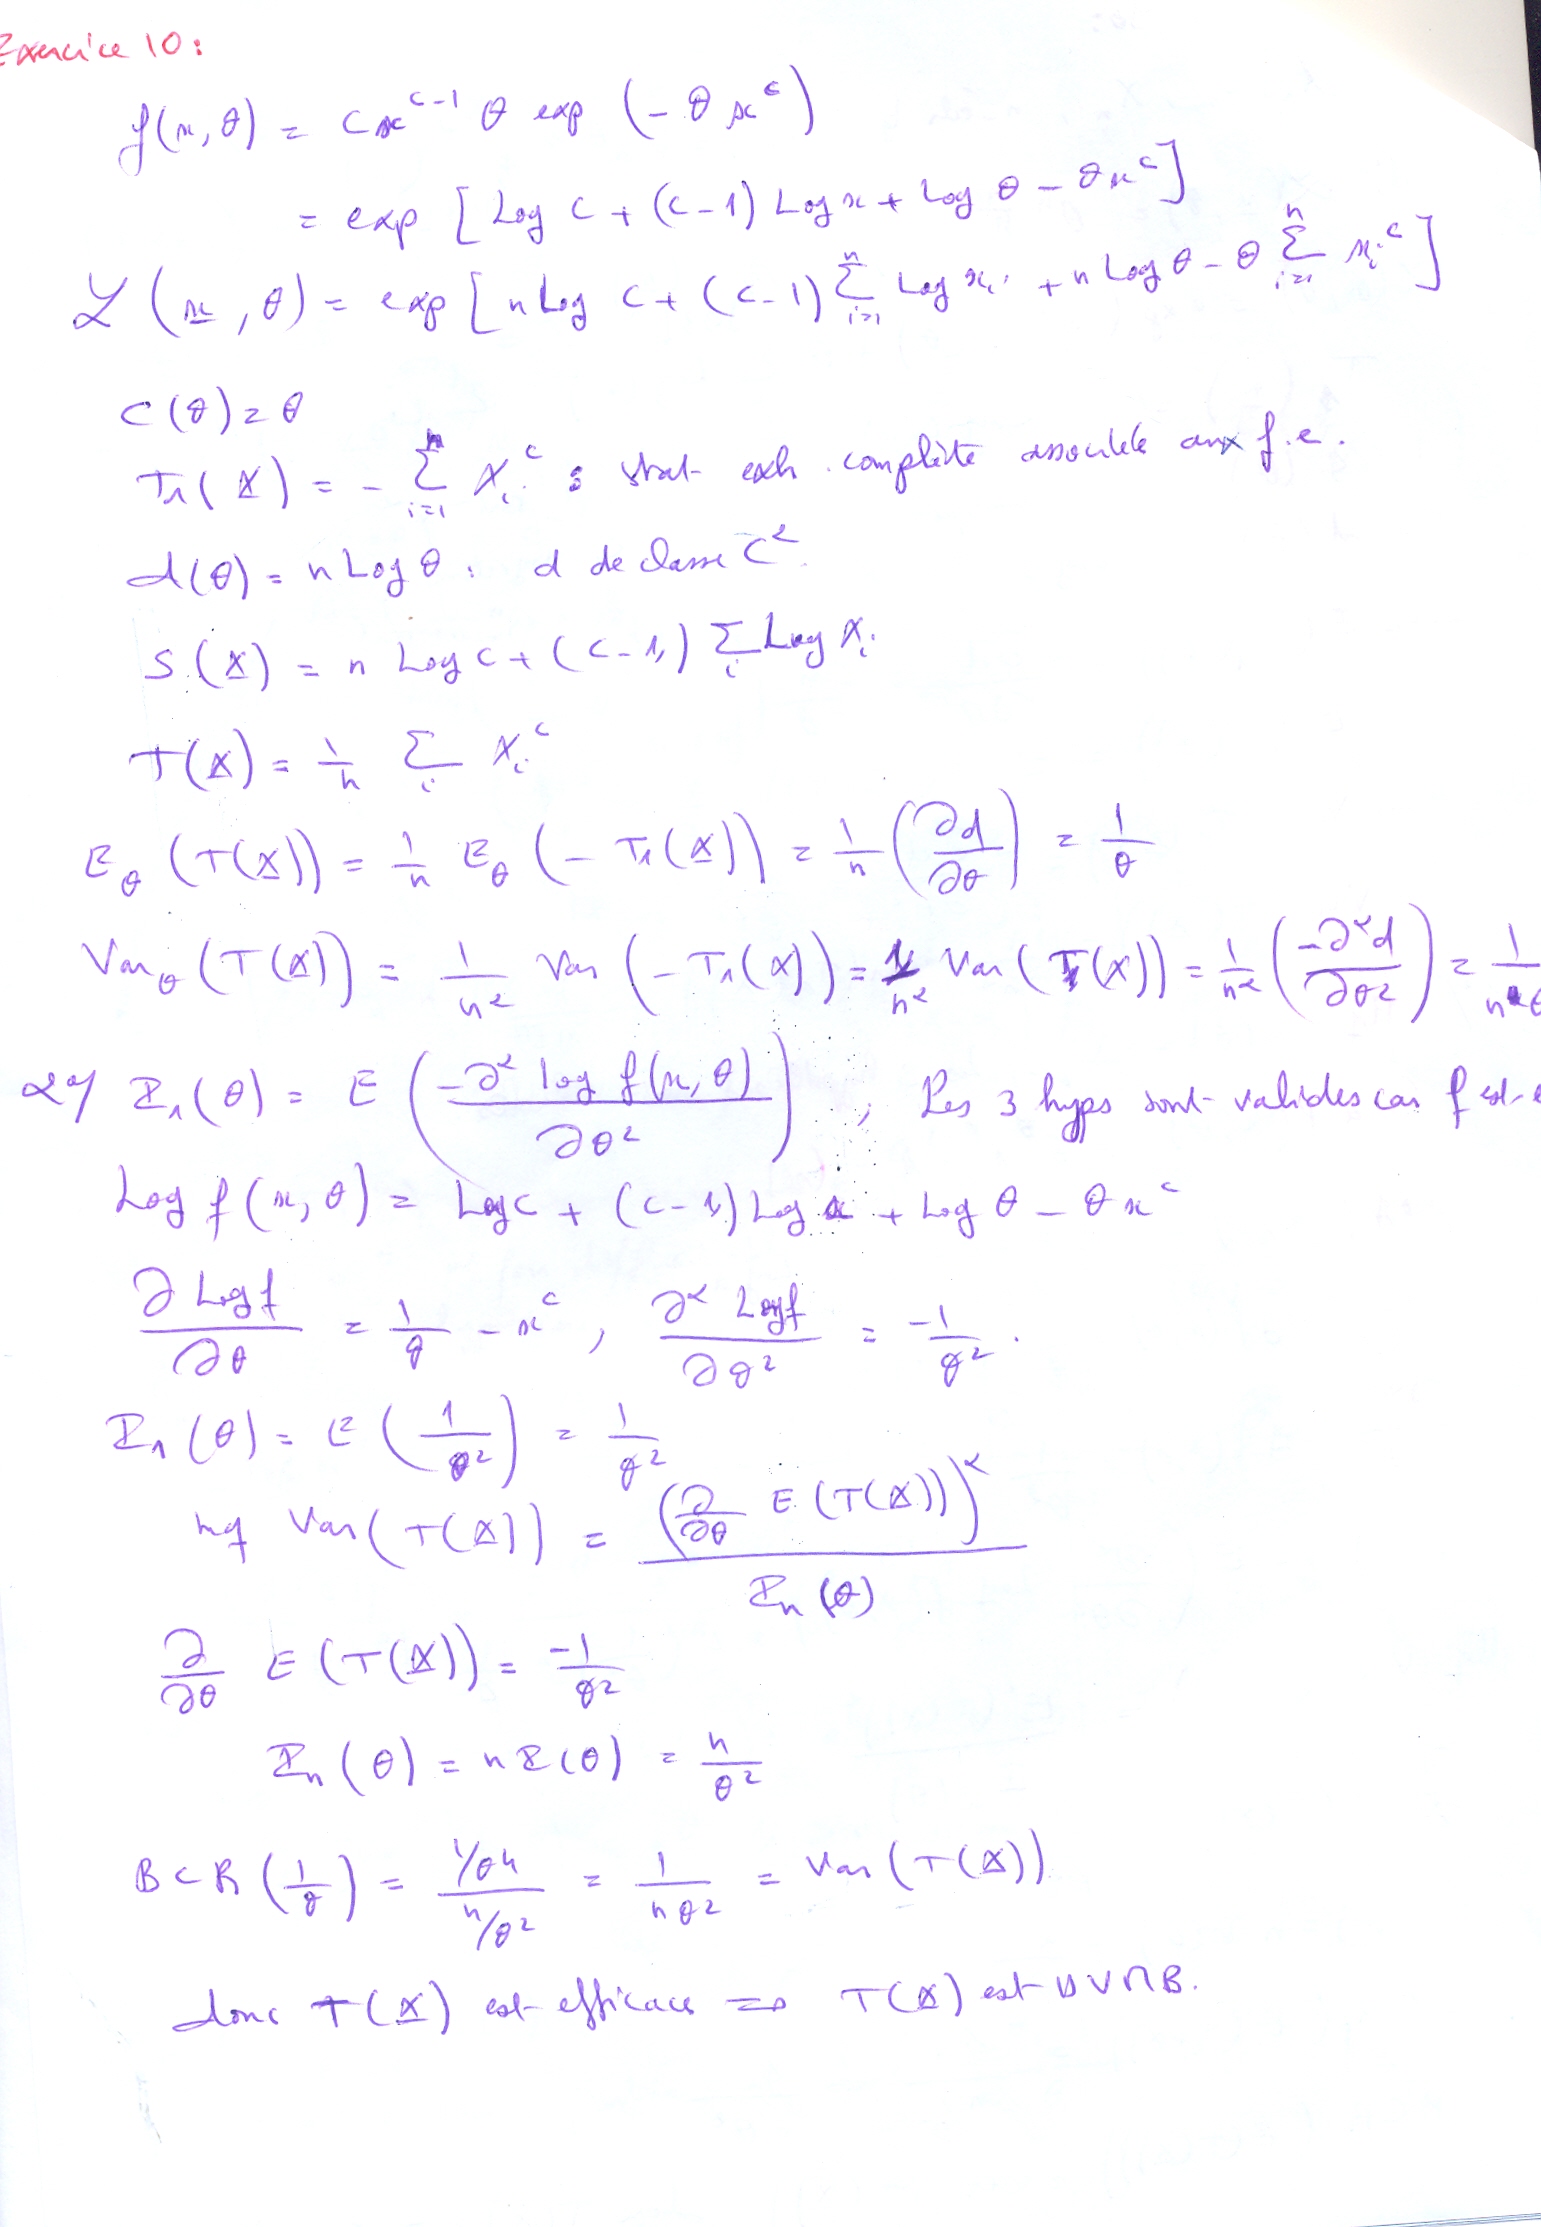 Exercice 10:
f(x, θ) = c x^{c-1} θ exp (- θ x^c)
= exp [ Log c + (c-1) Log x + Log θ - θ x^c ]
L (x, θ) = exp [ n Log c + (c-1) Σ_{i=1}^{n} Log x_i + n Log θ - θ Σ_{i=1}^{n} x_i^c ]
c(θ) = θ
T_1(X) = - Σ_{i=1}^{n} X_i^c : stat exh. complète associée aux f.e.
d(θ) = n Log θ : d de classe C^2
S(X) = n Log c + (c-1) Σ_i Log X_i
T(X) = 1/n Σ_i X_i^c
E_θ (T(X)) = 1/n E_θ (- T_1(X)) = 1/n (∂d/∂θ) = 1/θ
Var_θ (T(X)) = 1/n^2 Var (- T_1(X)) = 1/n^2 Var (T_1(X)) = 1/n^2 (-∂^2d/∂θ^2) = 1/n θ
2°/ I_1(θ) = E (-∂^2 log f(x, θ)/∂θ^2) ; Les 3 hyps sont valides car f est e
Log f(x, θ) = Log c + (c-1) Log x + Log θ - θ x^c
∂ Log f/∂θ = 1/θ - x^c , ∂^2 Log f/∂θ^2 = -1/θ^2 .
I_1 (θ) = E (1/θ^2) = 1/θ^2
mq Var(T(X)) = (∂/∂θ E(T(X)))^2 / I_n(θ)
∂/∂θ E(T(X)) = -1/θ^2
I_n(θ) = n I(θ) = n/θ^2
BCR (1/θ) = 1/θ^4 / n/θ^2 = 1/nθ^2 = Var (T(X))
donc T(X) est efficace => T(X) est UVMB.